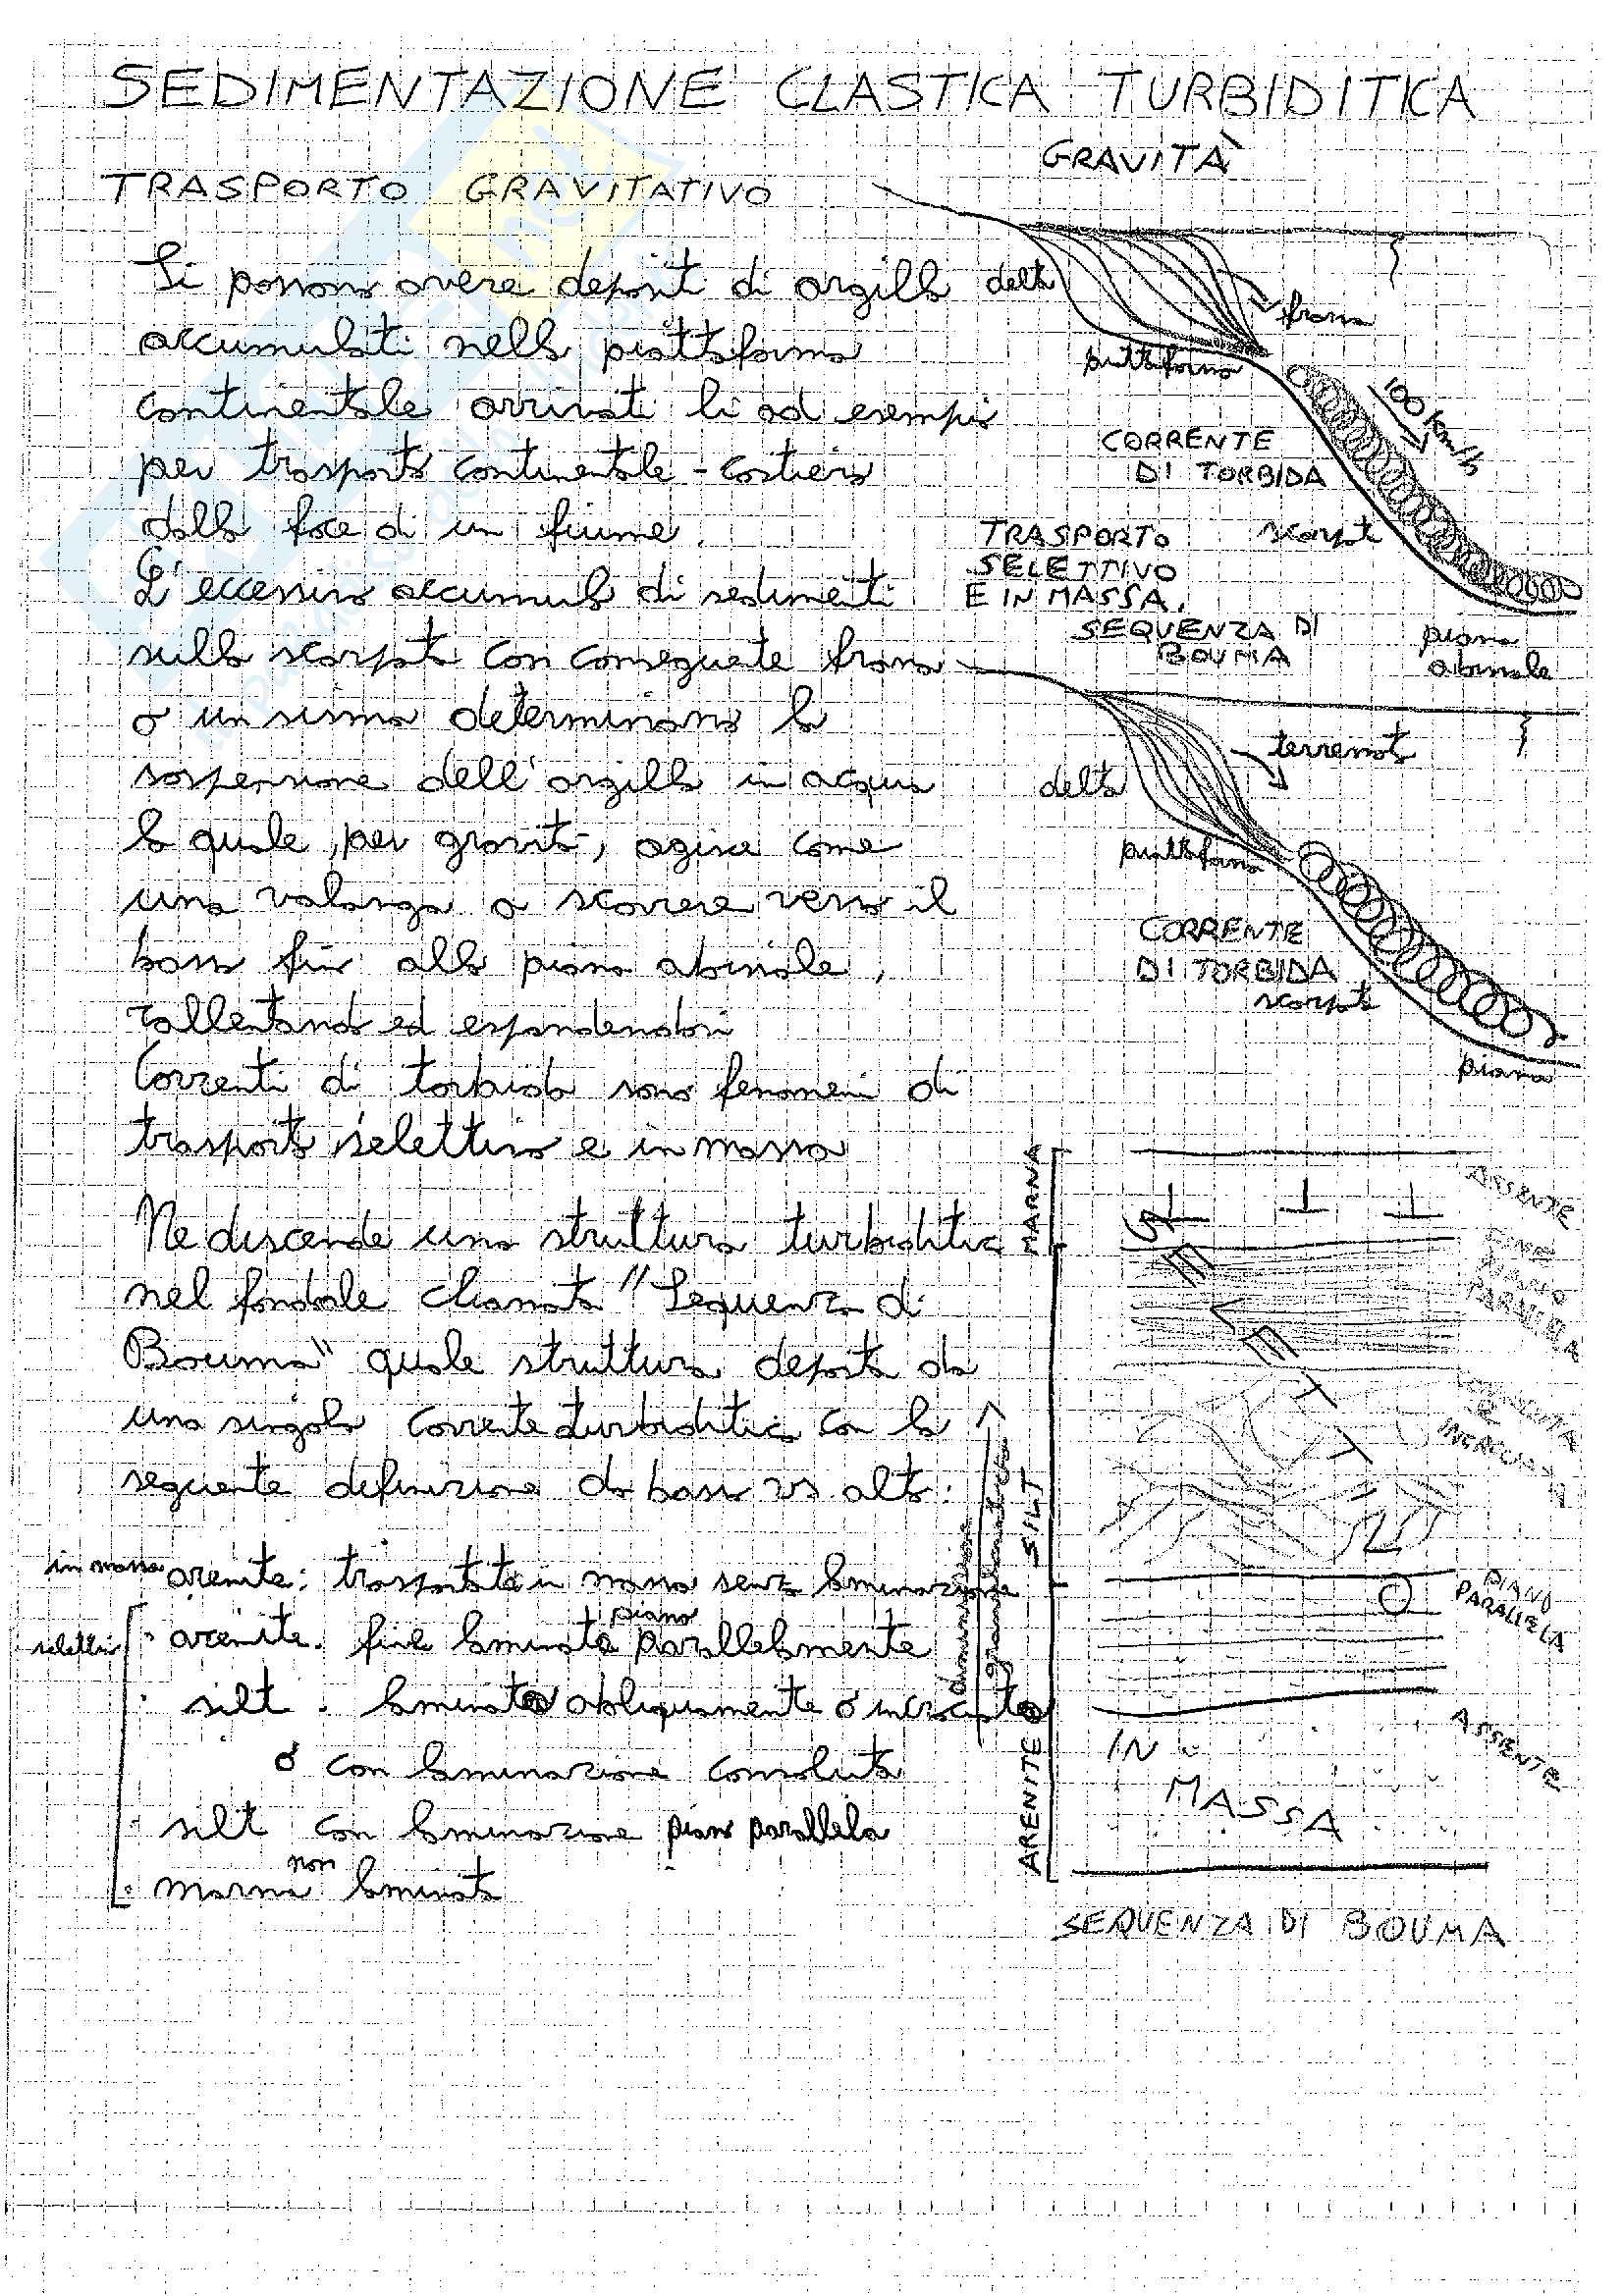 SEDIMENTAZIONE CLASTICA TURBIDITICA
TRASPORTO GRAVITATIVO
Si possono avere depositi di argilla
accumulati nella piattaforma
continentale arrivati lì ad esempio
per trasporto continentale - costiero
dalla foce di un fiume.
L'eccessivo accumulo di sedimenti
sulla scarpata con conseguente frana
o un sisma determinano la
sospensione dell'argilla in acqua
la quale, per gravità, agisce come
una valanga a scorrere verso il
basso fin alla piana abissale,
rallentando ed espandendosi
Correnti di torbida sono fenomeni di
trasporto selettivo e in massa
Ne discende una struttura turbiditica
nel fondale chiamata "Sequenza di
Bouma" quale struttura deposta da
una singola corrente turbiditica con la
seguente definizione da basso vs alto:
in massa arenite: trasportata in massa senza laminazione
selettivo arenite. fine laminata piano parallelamente
silt. laminato obliquamente o incrociato
o con laminazione convoluta
silt con laminazione piano parallela
marna non laminata
GRAVITÀ
delta
frana
piattaforma
100 km/h
CORRENTE
DI TORBIDA
scarpata
TRASPORTO
SELETTIVO
E IN MASSA.
SEQUENZA DI
BOUMA
piana
abissale
terremoto
delta
piattaforma
CORRENTE
DI TORBIDA
scarpata
piana
MARNA
SILT
ARENITE
diminuzione
granulometria
SELETTIVO
ASSENTE
FINE
PIANO
PARALLELA
CONVOLUTA
INCROCIATA
PIANO
PARALLELA
ASSENTE
IN
MASSA
SEQUENZA DI BOUMA